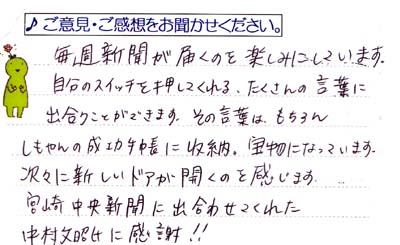 ♪ご意見・ご感想をお聞かせください。
毎週新聞が届くのを楽しみにしています。
自分のスイッチを押してくれる、たくさんの言葉に
出合うことができます。その言葉は、もちろん
しもやんの成功手帳に収納。宝物になっています。
次々に新しいドアが開くのを感じます。
宮崎中央新聞に出合わせてくれた
中村文昭氏に感謝!!